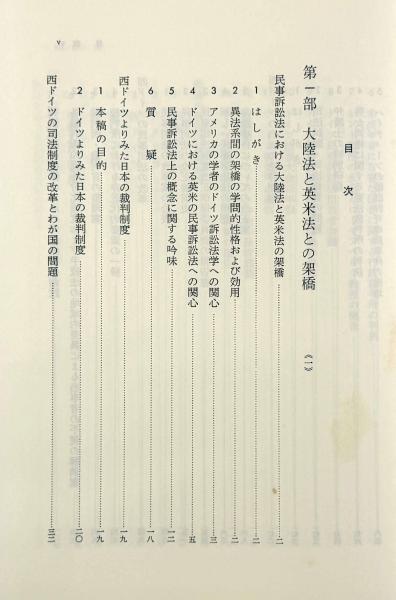 v
目次
第一部 大陸法と英米法との架橋 《一》
民事訴訟法における大陸法と英米法の架橋……二
1 はしがき……二
2 異法系間の架橋の学問的性格および効用……二
3 アメリカの学者のドイツ訴訟法学への関心……三
4 ドイツにおける英米の民事訴訟法への関心……五
5 民事訴訟法上の概念に関する吟味……一二
6 質疑……一八
西ドイツよりみた日本の裁判制度……一九
1 本稿の目的……一九
2 ドイツよりみた日本の裁判制度……二〇
西ドイツの司法制度の改革とわが国の問題……三二